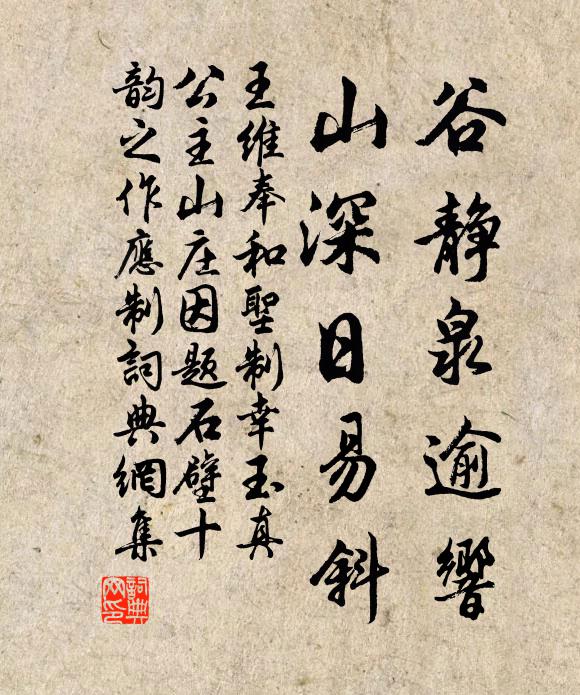 谷静泉逾響
山深日易斜
王維奉和聖制幸玉真
公主山庄因題石壁十
韵之作應制詞典網集
詞典
网印